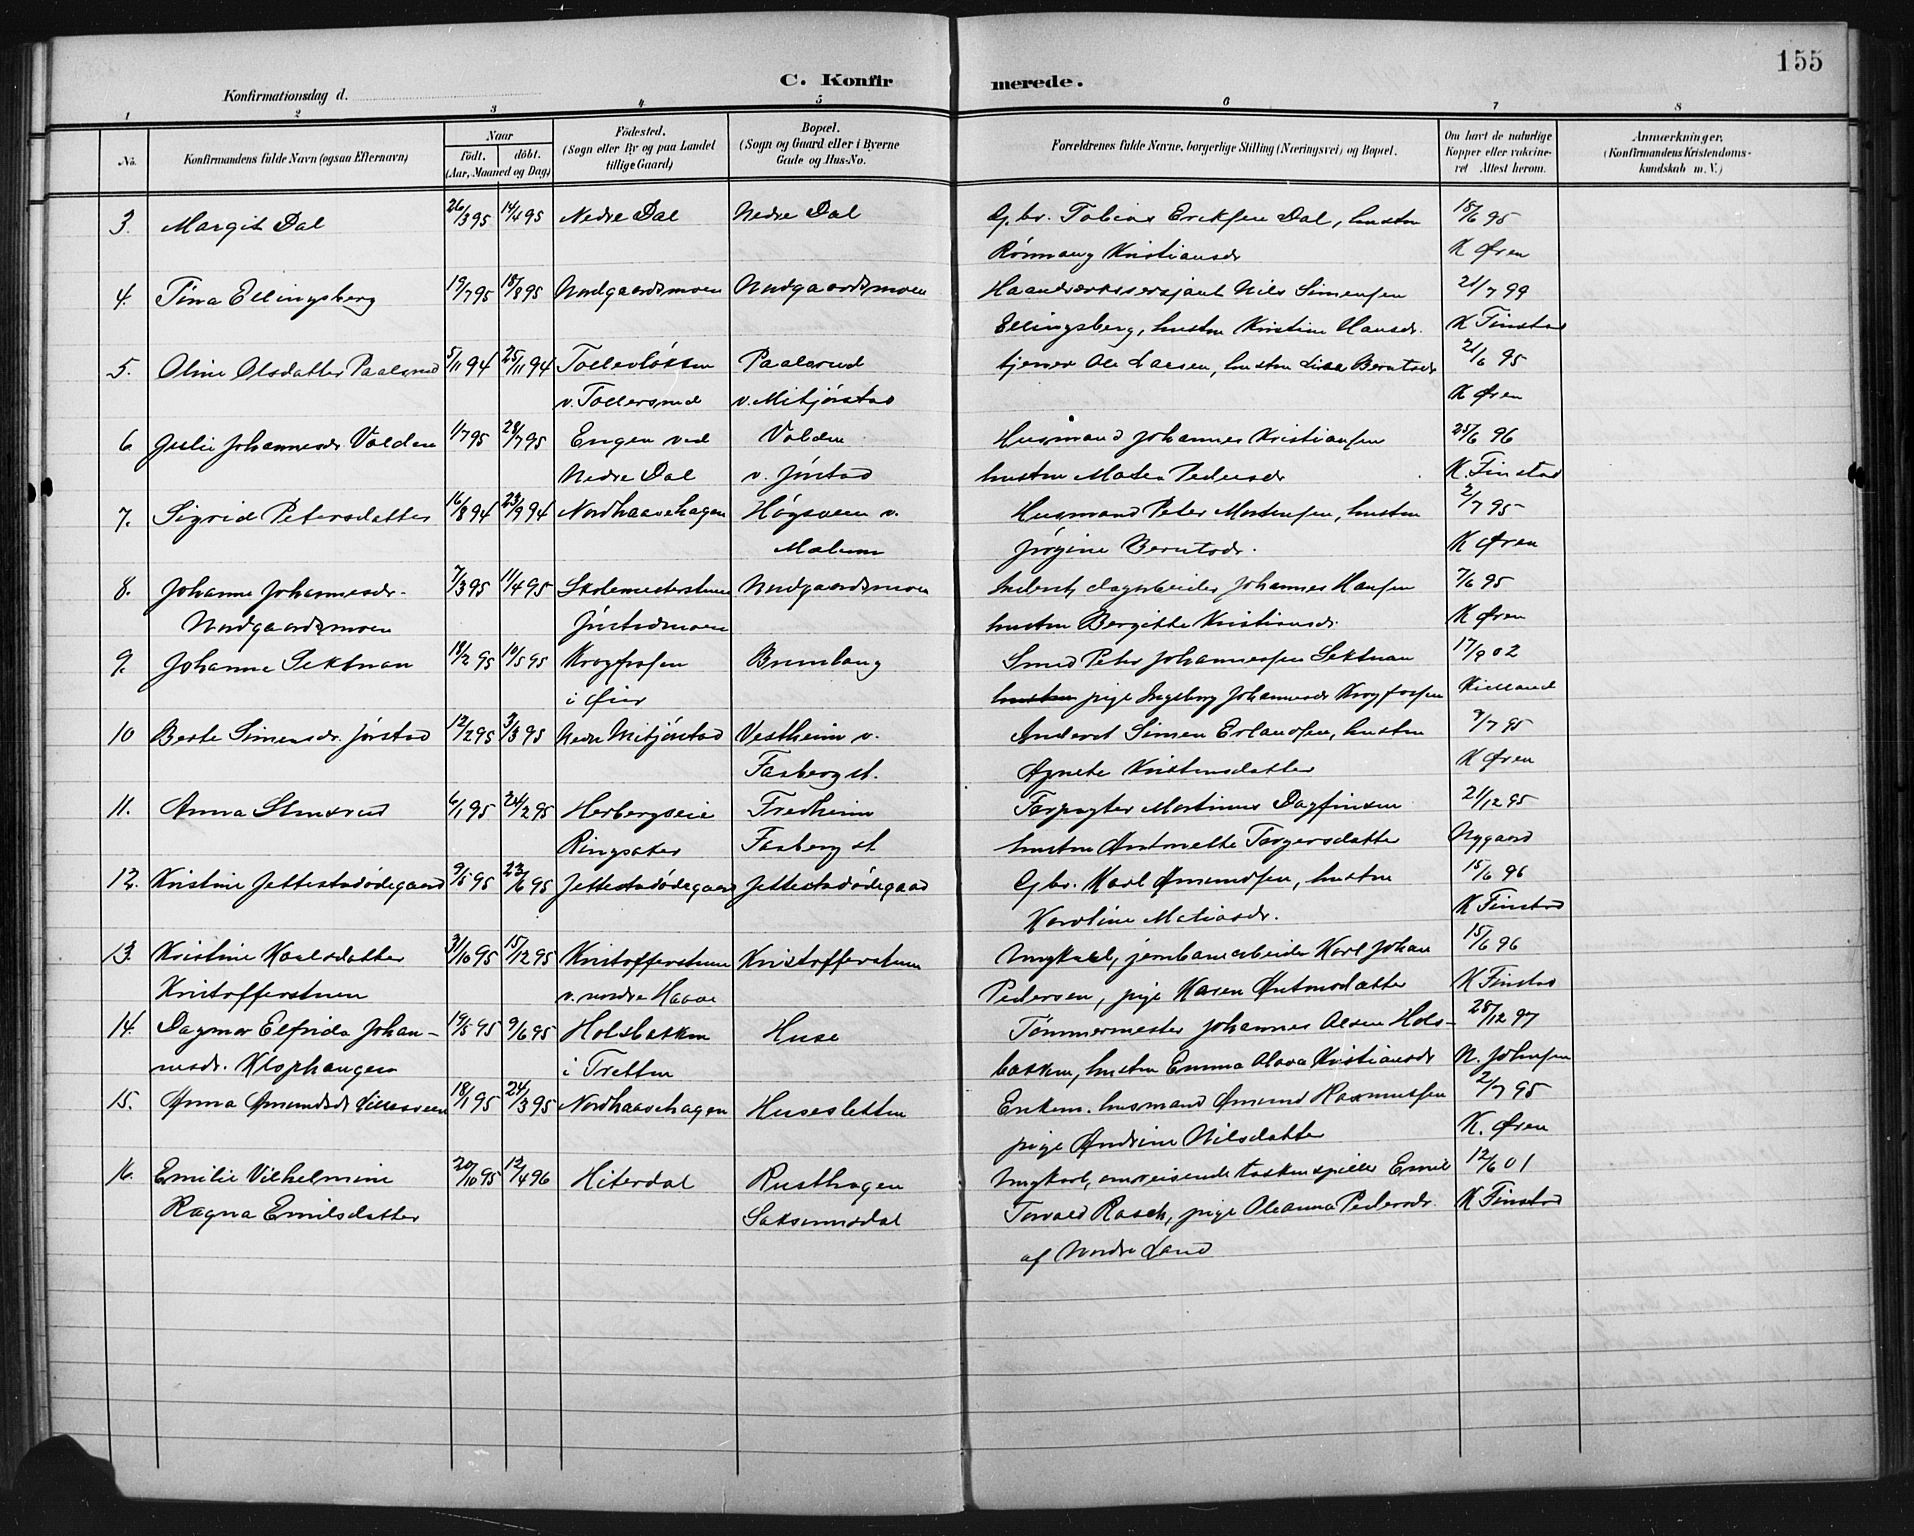 155
C. Konfirmerede.
Konfirmationsdag d.
1 2 3 4 5 6 7 8
No. Konfirmandens fulde Navn (ogsaa Efternavn) Naar födt. döbt. (Aar, Maaned og Dag) Födested. (Sogn eller By og paa Landet tillige Gaard) Bopæl. (Sogn og Gaard eller i Byerne Gade og Hus-No. Forældrenes fulde Navne, borgerlige Stilling (Næringsvei) og Bopæl. Om havt de naturlige Kopper eller vakcineret Attest herom. Anmærkninger. (Konfirmandens Kristendomskundskab m. V.)
3. Margit Dal 26/3 95 14/4 95 Nedre Dal Nedre Dal Gbr. Tobias Eriksen Dal, hustru 15/6 95
Rönnaug Kristiansdr K Øren
4. Tina Ellingsberg 19/7 95 18/8 95 Nordgaardsmoen Nordgaardsmoen Haandværkssersjant Nils Simensen 21/7 99
Ellingsberg, hustru Kristine Hansdr. K Finstad
5. Oline Olsdatter Paalsrud 5/11 94 25/11 94 Tollevløkken Paalsrud tjener Ole Larsen, hustru Lisa Berntsdr 21/6 95
v. Tollersrud v. Mitjörstad K Øren
6. Julie Johannesdr Volden 1/7 95 28/7 95 Engen ved Volden Husmand Johannes Kristiansen 25/6 96
Nedre Dal v. Jörstad hustru Matea Pedersdr K. Finstad
7. Sigrid Petersdatter 16/8 94 23/9 94 Nordhaavehagen Høgsveen v. Husmand Peter Mortensen, hustru 2/7 95
Mælum Jörgine Berntsdr. K Øren
8. Johanne Johannesdr. 7/3 95 11/4 95 Skolemesterstuen Nordgaardsmoen Inderst, dagarbeider Johannes Hansen 7/6 95
Nordgaardsmoen Jörstadmoen hustru Bergitte Kristiansdr. K Øren
9. Johanne Sektnan 18/2 95 10/5 95 Krogfossen Brunlaug Smed Peter Johannessen Sektnan 17/9 02
i Øier hustru pige Ingeborg Johannesdr Krogfossen Kielland
10 Berte Simensdr. Jörstad 12/2 95 3/3 95 Nedre Mitjörstad Vestheim v. Inderst Simen Erlandsen, hustru 3/7 95
Faaberg st. Agnete Kristensdatter K Øren
11. Anna Stensrud 6/1 95 24/2 95 Herbergseie Fredheim Forpagter Martinus Dagfinsen 21/12 95
Ringsaker Faaberg st hustru Antonette Torgersdatter Nygaard
12. Kristine Jettestadödegaard 9/5 95 23/6 95 Jettestadödegaard Jettestadödegaard Gbr. Karl Amundsen, hustru 15/6 96
Karoline Matiasdr. K Finstad
13. Kristine Karlsdatter 31/10 95 15/12 95 Kristofferstuen Kristofferstuen Ungkarl, jernbanearbeider Karl Johan 15/6 96
Kristofferstuen v. nordre Haave Pedersen, pige Karen Antonsdatter K Finstad
14. Dagmar Elfrida Johan- 19/5 95 9/6 95 Holsbakken Huse Tømmermester Johannes Olsen Hols- 28/12 97
nesdr. Klophaugen i Tretten bakken, hustru Emma Olava Kristiansdr N. Johnsen
15. Anna Amundsdr Lillesveen 18/1 95 24/3 95 Nordhaavehagen Husesletten Enkem. husmand Amund Rasmussen 2/7 95
pige Andrine Nilsdatter K. Øren
16. Emilie Vilhelmine 20/10 95 12/4 96 Hiterdal Rusthagen Ungkarl, omreisende taskenspiller Emil 12/6 01
Ragna Emilsdatter Saksumsdal Torvald Rasch, pige Oleanna Pedersdr. K Finstad
af Nordre Land